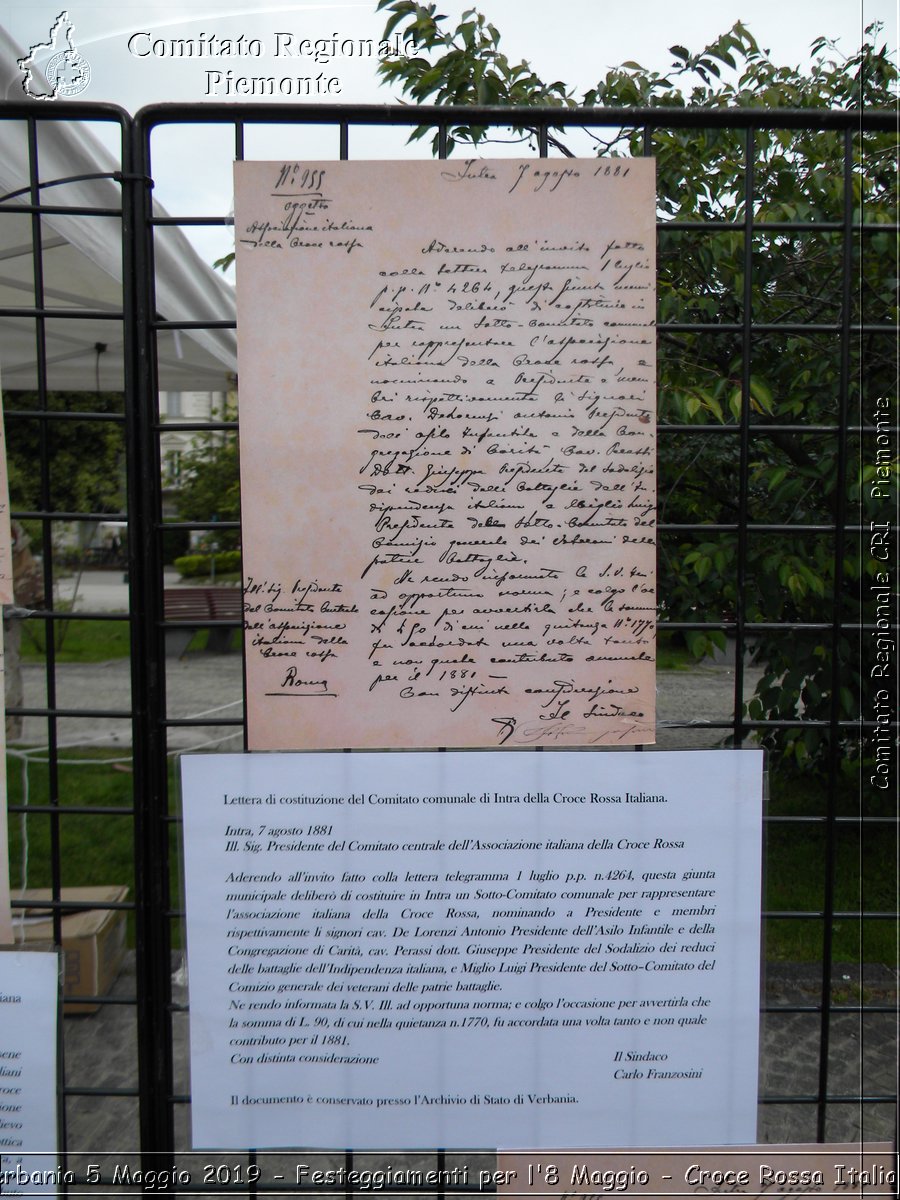 Comitato Regionale
Piemonte
N.º 955
oggetto
Associazione italiana
della Croce rossa
Intra 7 agosto 1881
Aderendo all'invito fatto
colla lettera telegramma 1 luglio
p.p. Nº 4264, questa giunta muni
cipale deliberò di costituire in
Intra un Sotto-Comitato comunale
per rappresentare l'associazione
italiana della Croce rossa, e
nominando a Presidente e mem
bri rispettivamente li Signori
Cav. Delorenzi Antonio Presidente
dell'asilo Infantile e della Con-
gregazione di Carità, Cav. Perassi
Dott. Giuseppe Presidente del Sodalizio
dei reduci delle Battaglie dell'In-
dipendenza italiana, e Miglio Luigi
Presidente della Sotto-Comitato del
Comizio generale dei Veterani delle
patrie Battaglie.
Ne rendo informata la S.V. Ill.
ad opportuna norma; e colgo l'oc
casione per avvertirla che la somma
di £ 90 di cui nella quitanza Nº 1770
fu accordata una volta tanto
e non quale contributo annuale
per il 1881 —
Con distinta considerazione
Il Sindaco
Ill. Sig. Presidente
del Comitato Centrale
dell'associazione
italiana della
Croce rossa
Roma
Lettera di costituzione del Comitato comunale di Intra della Croce Rossa Italiana.
Intra, 7 agosto 1881
Ill. Sig. Presidente del Comitato centrale dell'Associazione italiana della Croce Rossa
Aderendo all'invito fatto colla lettera telegramma 1 luglio p.p. n.4264, questa giunta
municipale deliberò di costituire in Intra un Sotto-Comitato comunale per rappresentare
l'associazione italiana della Croce Rossa, nominando a Presidente e membri
rispettivamente li signori cav. De Lorenzi Antonio Presidente dell'Asilo Infantile e della
Congregazione di Carità, cav. Perassi dott. Giuseppe Presidente del Sodalizio dei reduci
delle battaglie dell'Indipendenza italiana, e Miglio Luigi Presidente del Sotto-Comitato del
Comizio generale dei veterani delle patrie battaglie.
Ne rendo informata la S.V. Ill. ad opportuna norma; e colgo l'occasione per avvertirla che
la somma di L. 90, di cui nella quietanza n.1770, fu accordata una volta tanto e non quale
contributo per il 1881.
Con distinta considerazione
Il Sindaco
Carlo Franzosini
Il documento è conservato presso l'Archivio di Stato di Verbania.
Comitato Regionale CRI Piemonte
erbania 5 Maggio 2019 - Festeggiamenti per l'8 Maggio - Croce Rossa Italia